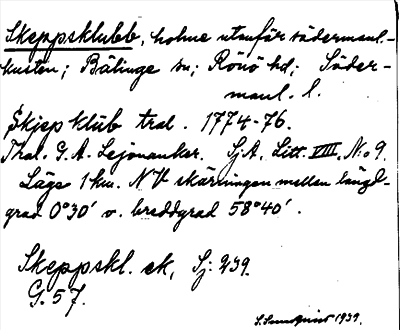 Skeppsklubb, holme utanför södermanl.-
kusten; Bälinge sn; Rönö hd; Söder-
manl. l.
Skjep klüb tral. 1774-76.
Thal. G.A. Lejonanker. SjA, Litt. VIII, N:o 9.
Läge 1 km. NV skärningen mellan längd-
grad 0°30' o. breddgrad 58°40'.
Skeppskl. ek, Sj: 239.
G. 57.
S. Sundquist 1939.